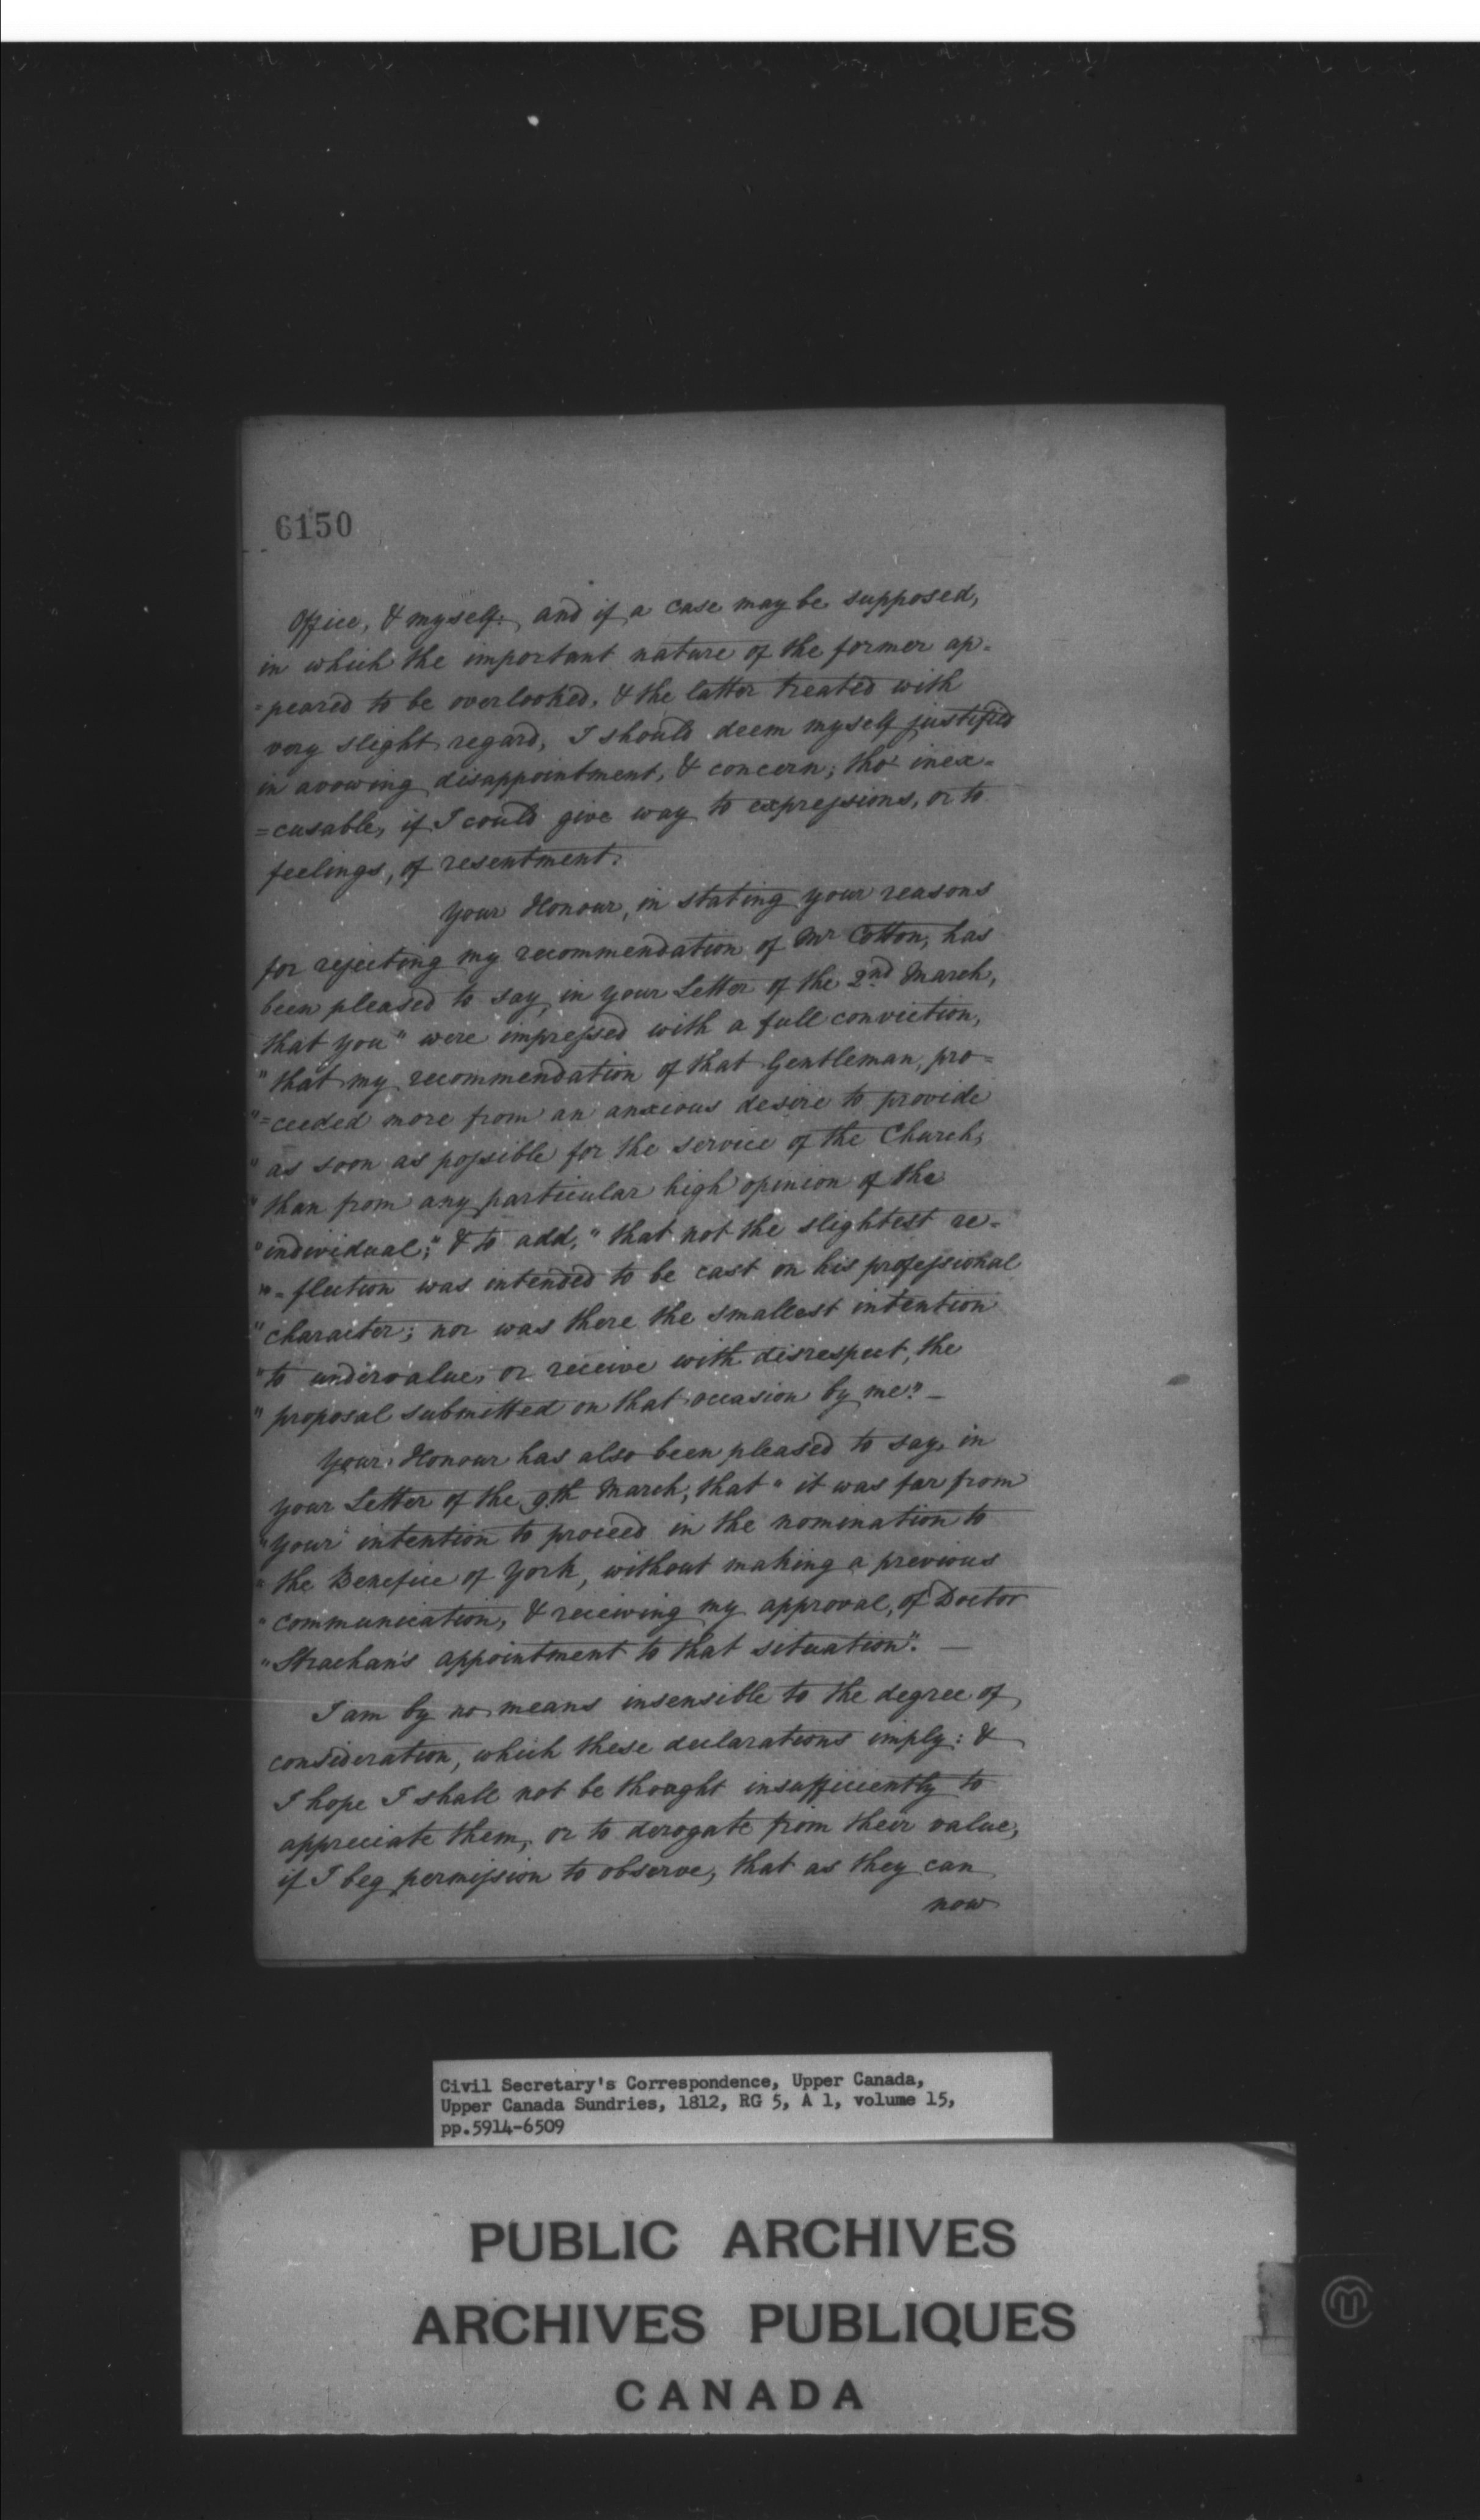 6150
Office, & myself: and if a case may be supposed,
in which the important nature of the former ap-
=peared to be overlooked, & the latter treated with
very slight regard, I should deem myself justified
in avowing disappointment, & concern; tho' inex-
=cusable, if I could give way to expressions, or to
feelings, of resentment.
Your Honour, in stating your reasons
for rejecting my recommendation of Mr Cotton, has
been pleased to say, in your Letter of the 2nd March,
that you "were impressed with a full conviction,
"that my recommendation of that Gentleman, pro=
"=ceeded more from an anxious desire to provide
"as soon as possible for the service of the Church,
"than from any particular high opinion of the
"individual;" & to add, "that not the slightest re-
"-flection was intended to be cast on his professional
"character; nor was there the smallest intention
"to undervalue, or receive with disrespect, the
"proposal submitted on that occasion by me." –
Your Honour has also been pleased to say, in
your Letter of the 9th March, that "it was far from
"your" intention to proceed in the nomination to
"the Benefice of York, without making a previous
"communication, & receiving my approval, of Doctor
"Strachan's appointment to that situation". —
I am by no means insensible to the degree of
consideration, which these declarations imply: &
I hope I shall not be thought insufficiently to
appreciate them, or to derogate from their value,
if I beg permission to observe, that as they can
now
Civil Secretary's Correspondence, Upper Canada,
Upper Canada Sundries, 1812, RG 5, A 1, volume 15,
pp.5914-6509
PUBLIC ARCHIVES
ARCHIVES PUBLIQUES
CANADA